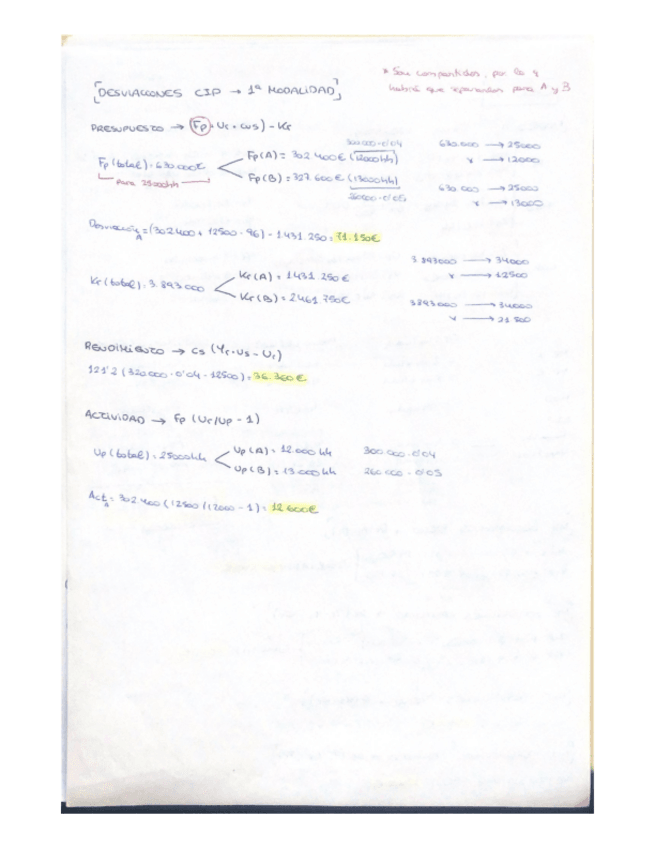 [DESVIACIONES CIP → 1ª MODALIDAD]
* Son compartidos, por lo q
habrá que repartirlos para A y B
PRESUPUESTO → (Fp + Ur · cvs) - Kr
300.000 · 0'04
Fp(total) = 630.000€
Fp(A) = 302 400€ (12000hh)
Fp(B) = 327 600€ (13000hh)
para 25000hh
260000 · 0'05
630.000 → 25000
x → 12000
630.000 → 25000
x → 13000
Desviación A = (302400 + 12500 · 96) - 1431.250 = 71.150€
Kr(total) = 3.893.000
Kr(A) = 1431.250€
Kr(B) = 2461.750€
3.893000 → 34000
x → 12500
3893000 → 34000
x → 21500
RENDIMIENTO → cs (Yr · us - Ur)
121'2 (320000 · 0'04 - 12500) = 36.360€
ACTIVIDAD → Fp (Ur/Up - 1)
Up(total) = 25000hh
Up(A) = 12.000hh 300.000 · 0'04
Up(B) = 13.000hh 260.000 · 0'05
Act A = 302400 (12500/12000 - 1) = 12.600€